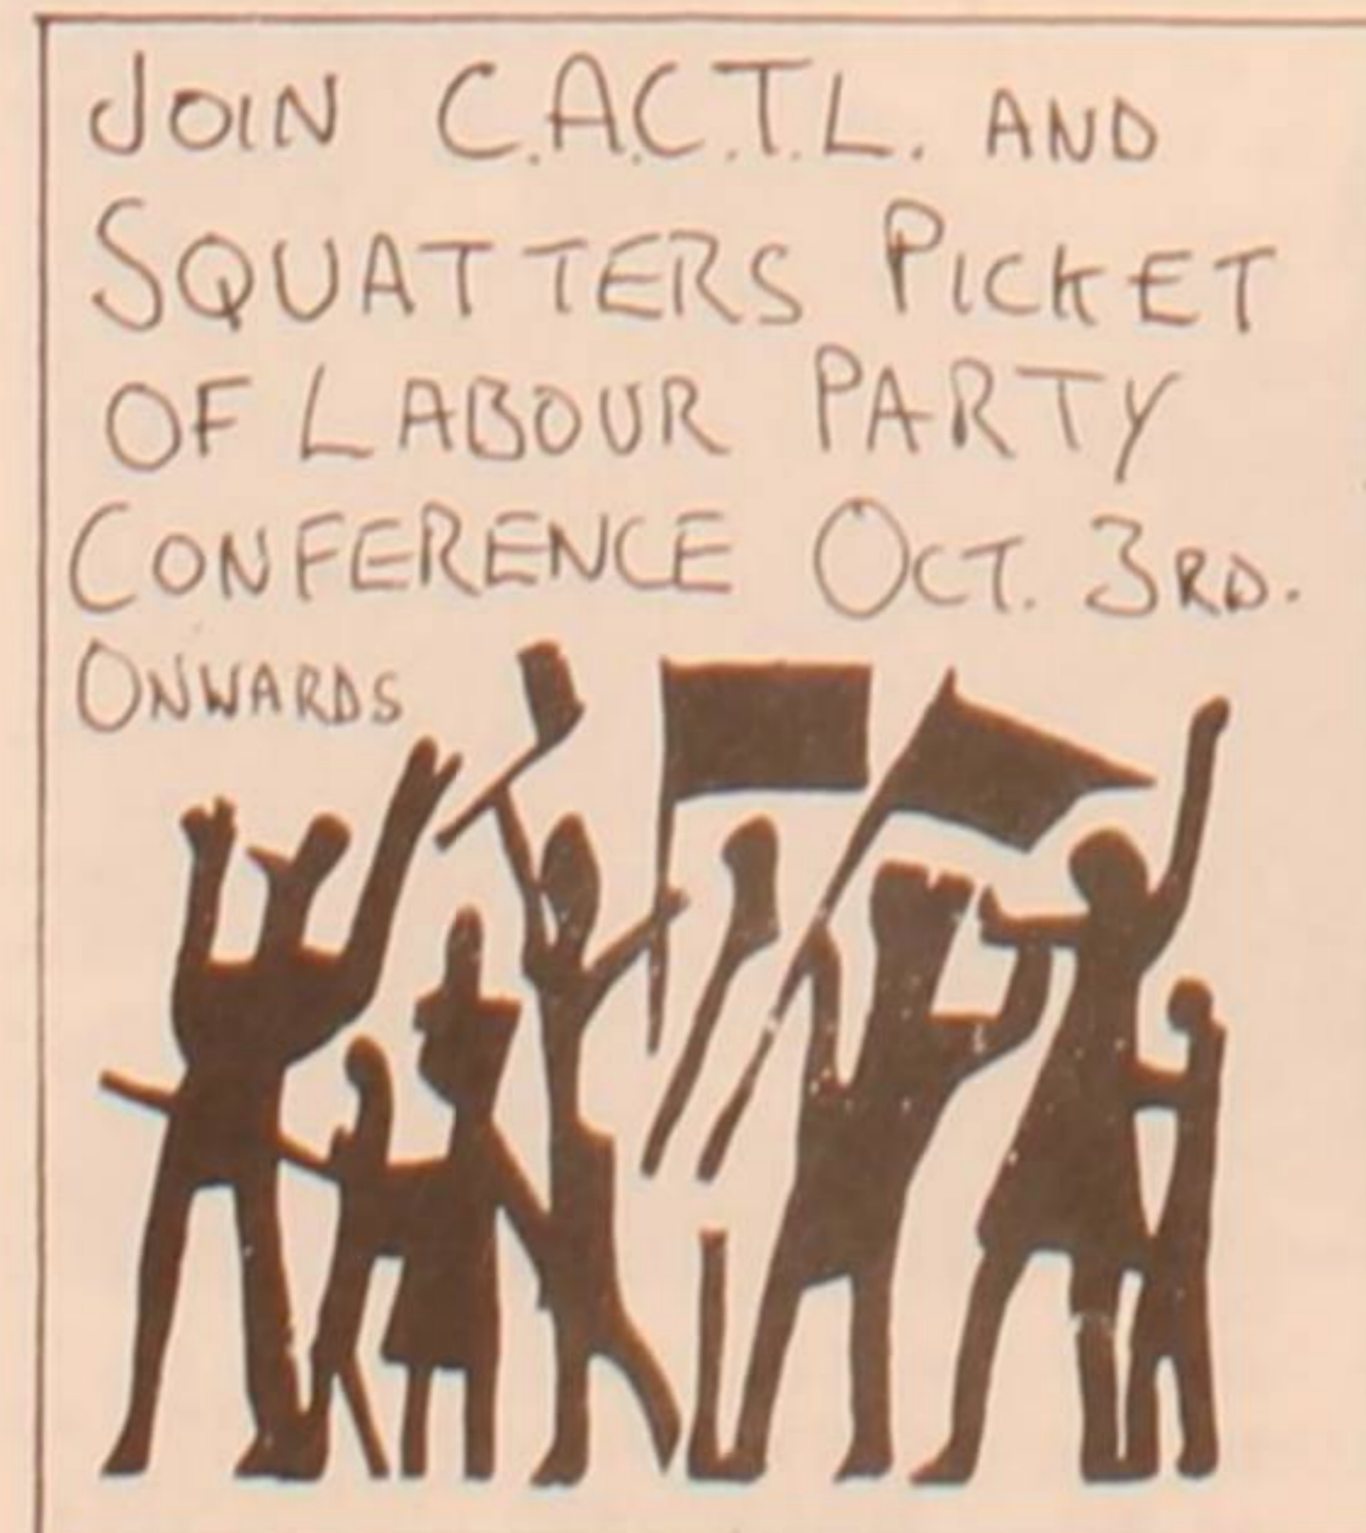 JOIN C.A.C.T.L. AND
SQUATTERS PICKET
OF LABOUR PARTY
CONFERENCE OCT. 3RD.
ONWARDS